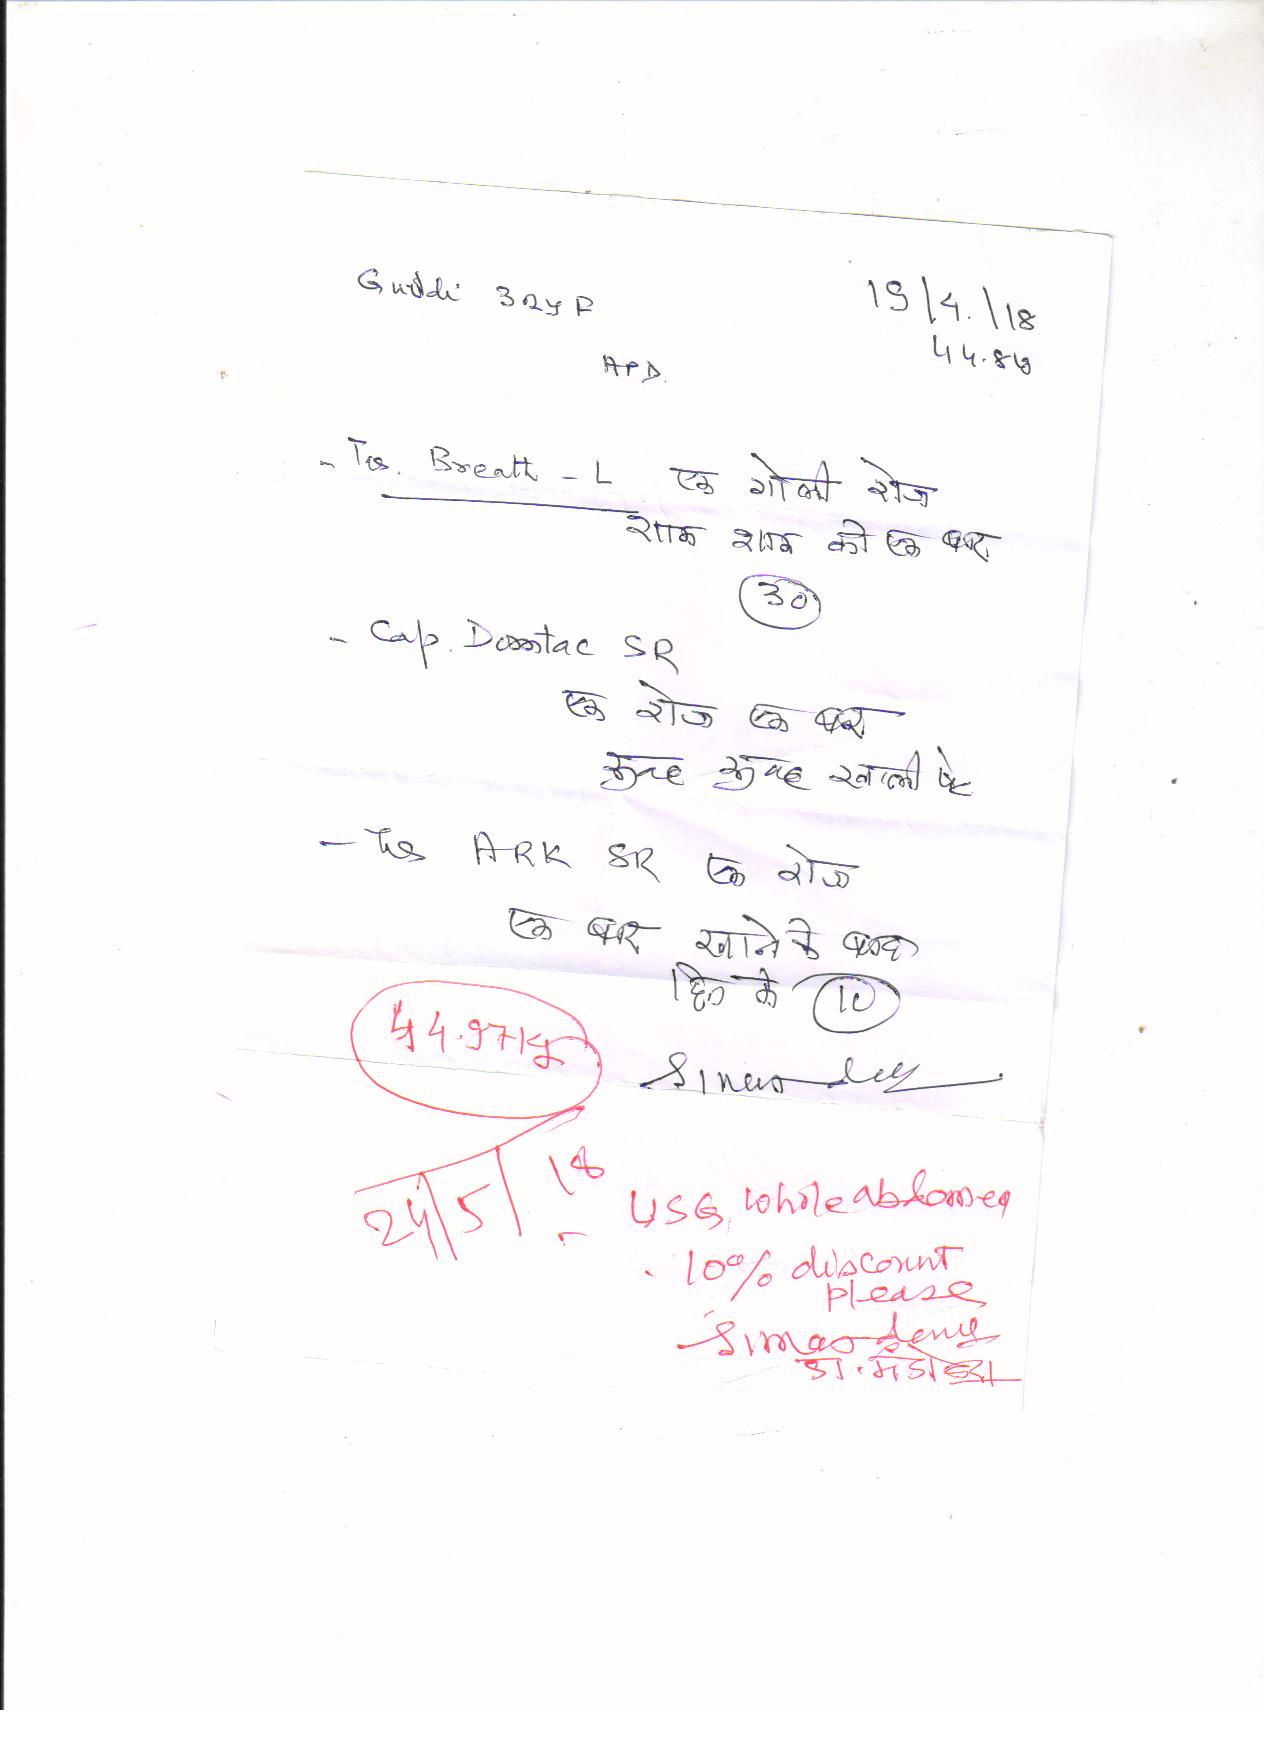 Guddi 32yF
19/4/18
44.8
APD
- Tab. Breath - L एक गोली रोज
शाम शाम को एक बार
30
- Cap. Domstac SR
एक रोज एक बार
सुबह सुबह खाली पेट
- Tab ARK SR एक रोज
एक बार खाने के बाद
दिन के 10
44.97kg
24/5/18
- USG, whole abdomen
. 10% discount
please